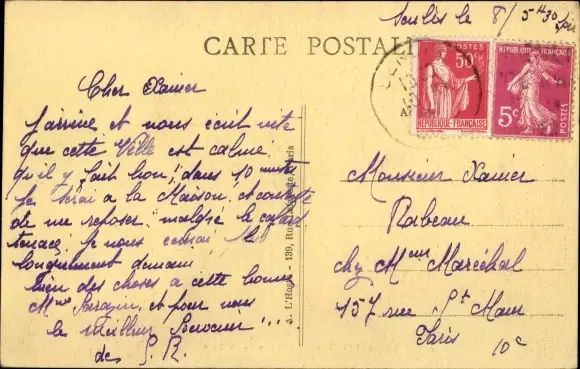 le 8/5
CARTE POSTALE
POSTES
50c
REPUBLIQUE FRANÇAISE
REPUBLIQUE FRANÇAISE
5c
POSTES
Cher Xavier
J'arrive et nous écrit vite
que cette Ville est calme
qu'il y fait bon! dans 10 minutes
Je serai a la Maison, et
de me reposer. malgré le
Je vous
longuement demain
bien des choses a cette bonne
Mme et pour vous
le Meilleur Souvenir
de S. R.
Monsieur Xavier
Rabeau
chez Mme Maréchal
157 rue St Maur
Paris
10e
139, Rue